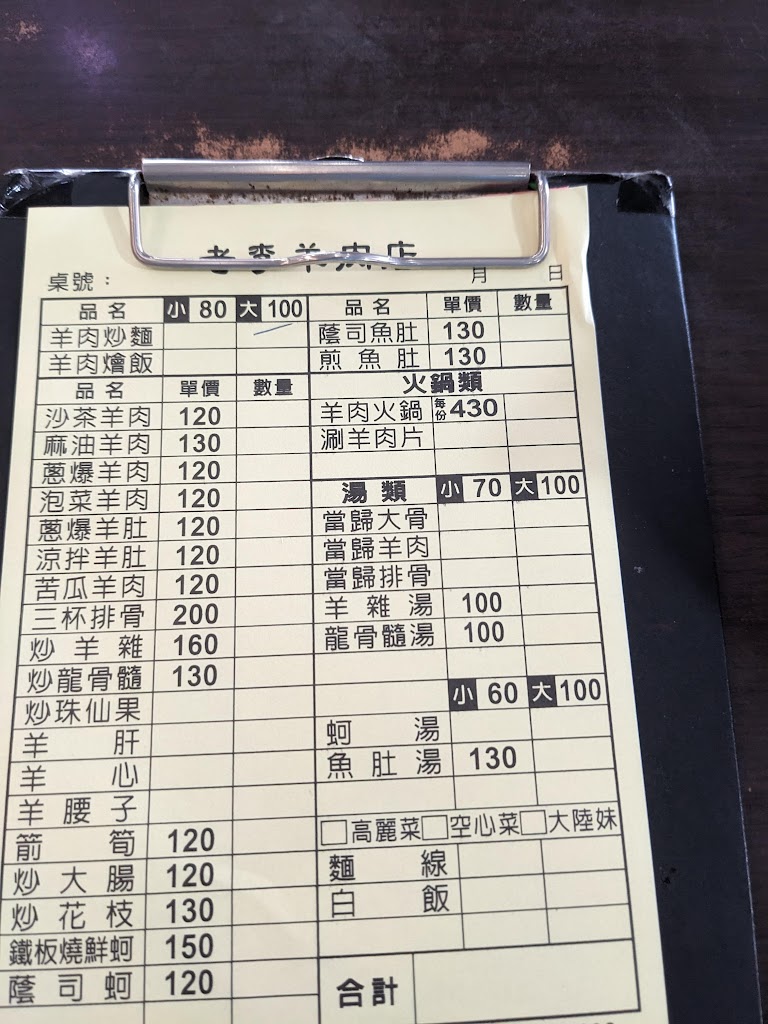 老李羊肉店
桌號： 月 日
品名 小 80 大 100
羊肉炒麵
羊肉燴飯
品名 單價 數量
沙茶羊肉 120
麻油羊肉 130
蔥爆羊肉 120
泡菜羊肉 120
蔥爆羊肚 120
涼拌羊肚 120
苦瓜羊肉 120
三杯排骨 200
炒羊雜 160
炒龍骨髓 130
炒珠仙果
羊肝
羊心
羊腰子
箭筍 120
炒大腸 120
炒花枝 130
鐵板燒鮮蚵 150
蔭司蚵 120
品名 單價 數量
蔭司魚肚 130
煎魚肚 130
火鍋類
羊肉火鍋 每份 430
涮羊肉片
湯類 小 70 大 100
當歸大骨
當歸羊肉
當歸排骨
羊雜湯 100
龍骨髓湯 100
小 60 大 100
蚵湯
魚肚湯 130
□高麗菜□空心菜□大陸妹
麵線
白飯
合計